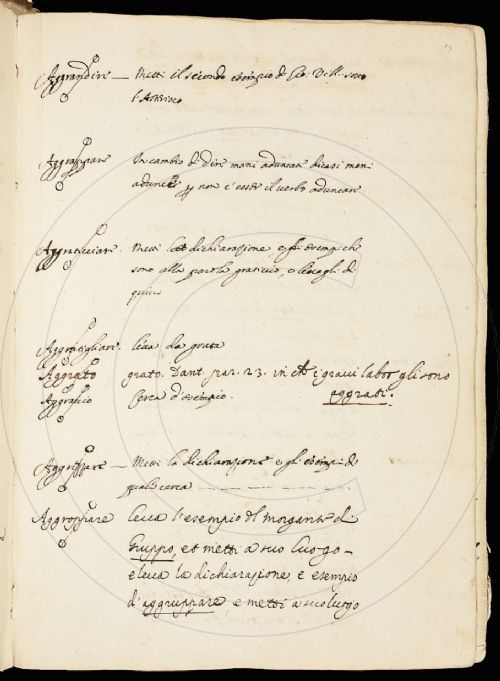 Aggrandire — Metti il secondo esempio di Gio. Vill. sotto
l'
Aggrappare In cambio di dire mani aduncate dicasi mani
adunche non c'essendo il verbo aduncare
Aggraticciare. Metti la dichiarazione, e gli esempi che
sono alla parola graticcio, e levagli di
quivi
Aggratigliare. leva da grata
Aggrato grato. Dant. par. 23. in ch i gravi labor gli sono
aggrati.
Aggravio cerca d'esempio.
Aggreppare — Metti la dichiarazione e gli esempi di
quali cerca
Aggroppare Leva l'esempio del Morgante di
Gruppo, et metti a suo luogo —
e leva la dichiarazione, e esempio
d'aggruppare, e metti a suo luogo